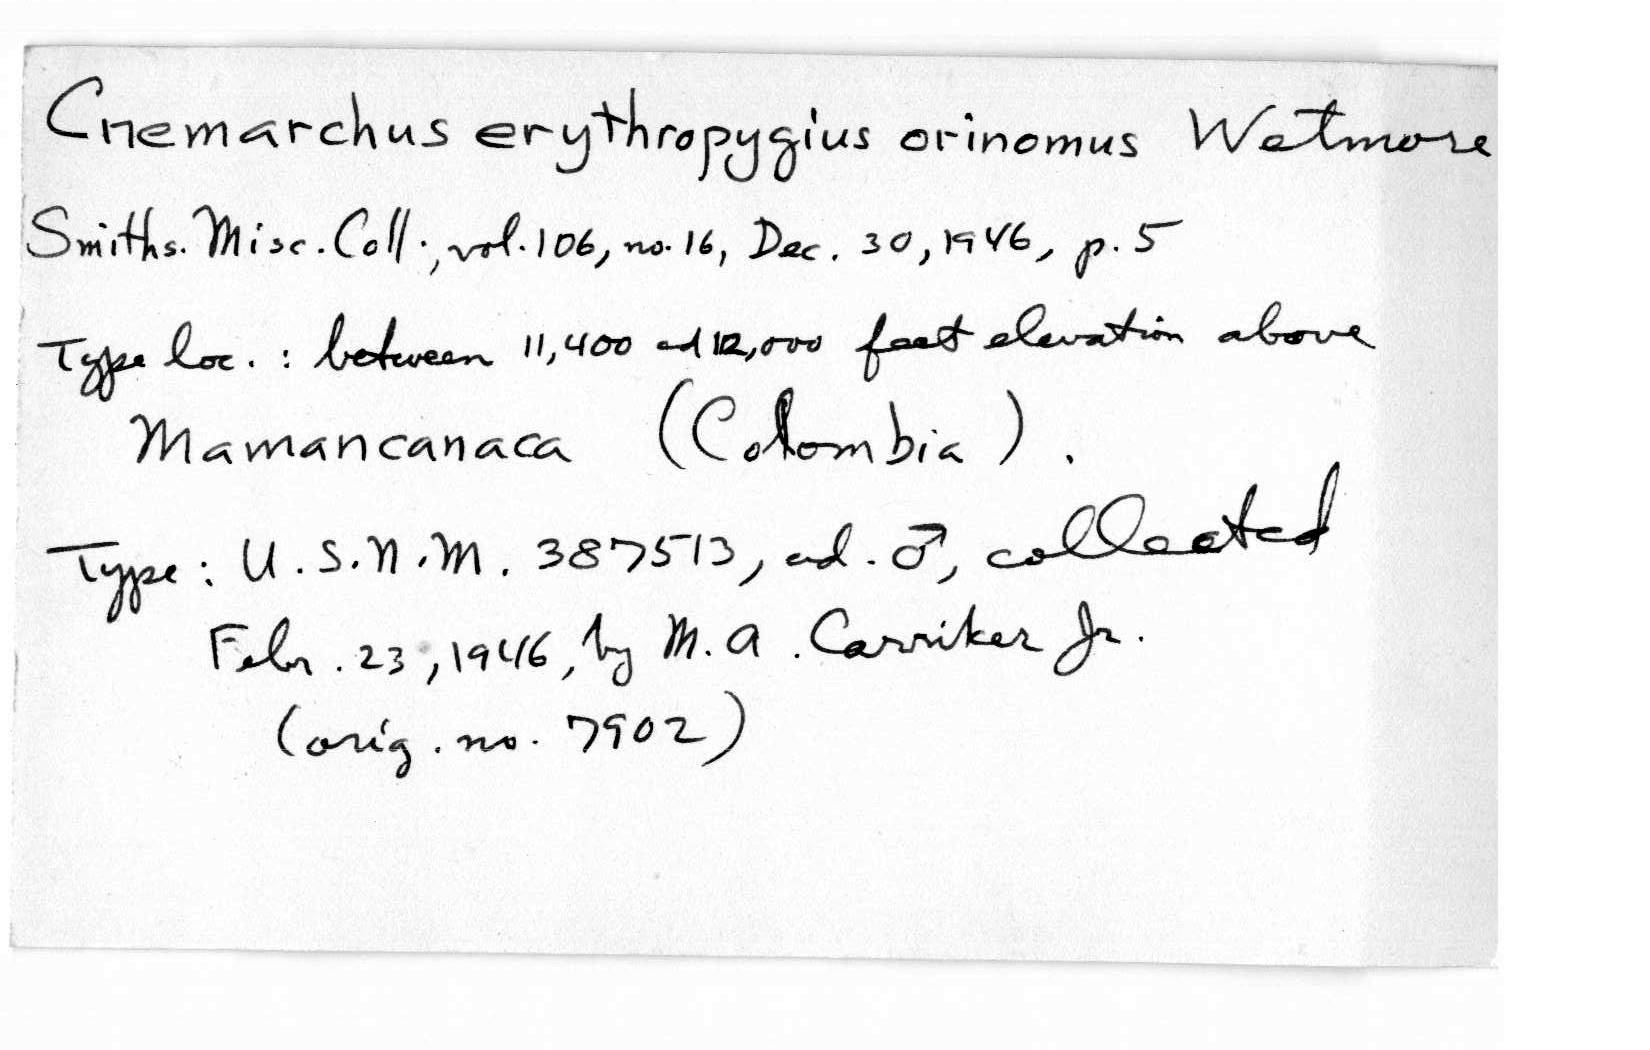 Cnemarchus erythropygius orinomus Wetmore
Smiths. Misc. Coll., vol. 106, no. 16, Dec. 30, 1946, p. 5
Type loc. : between 11,400 and 12,000 feet elevation above
Mamancanaca (Colombia).
Type: U.S.N.M. 387513, ad. ♂, collected
Febr. 23, 1946, by M. A. Carriker Jr.
(orig. no. 7902)